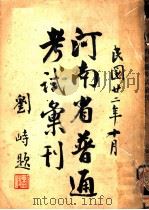 民國廿二年十月
河南省普通
考試彙刊
劉峙題